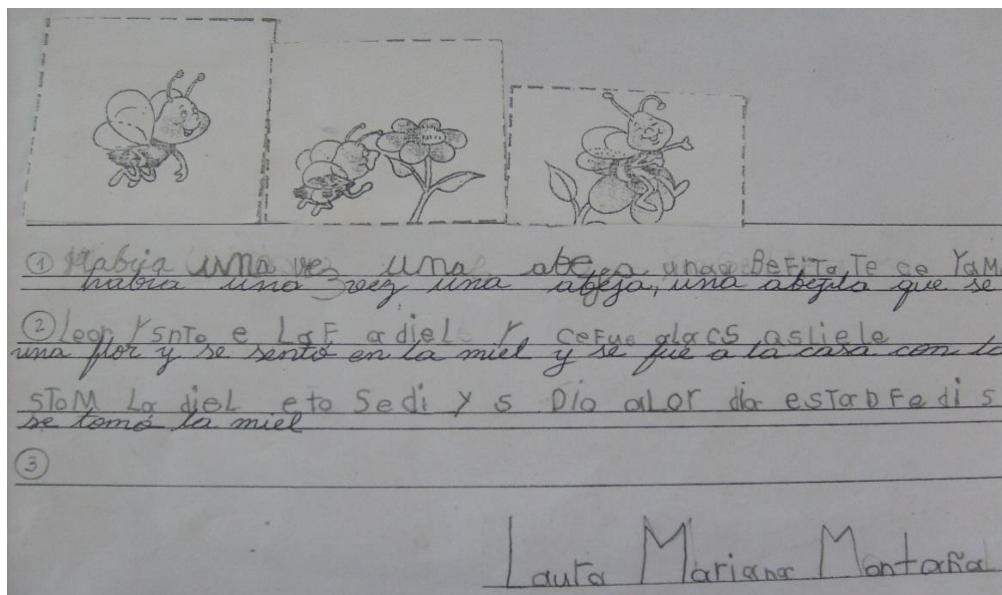 ① Habija uma vez uma abe a unaa BeFiTa Te ce YaMa
habia una vez una abeja, una abejita que se
② Leor YsnTo e LaF adieL Y ceFue alacS asliele
una flor y se sentó en la miel y se fue a la casa con la
sToM La dieL eto Sedi y s Dio aLor dia esTaDFedis
se tomó la miel
③
Laura Mariana Montaña